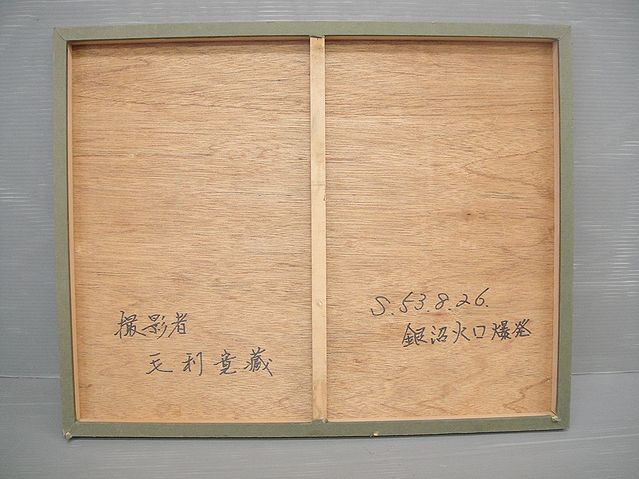 撮影者
毛利寛藏
S.53.8.26.
銀沼火口爆発